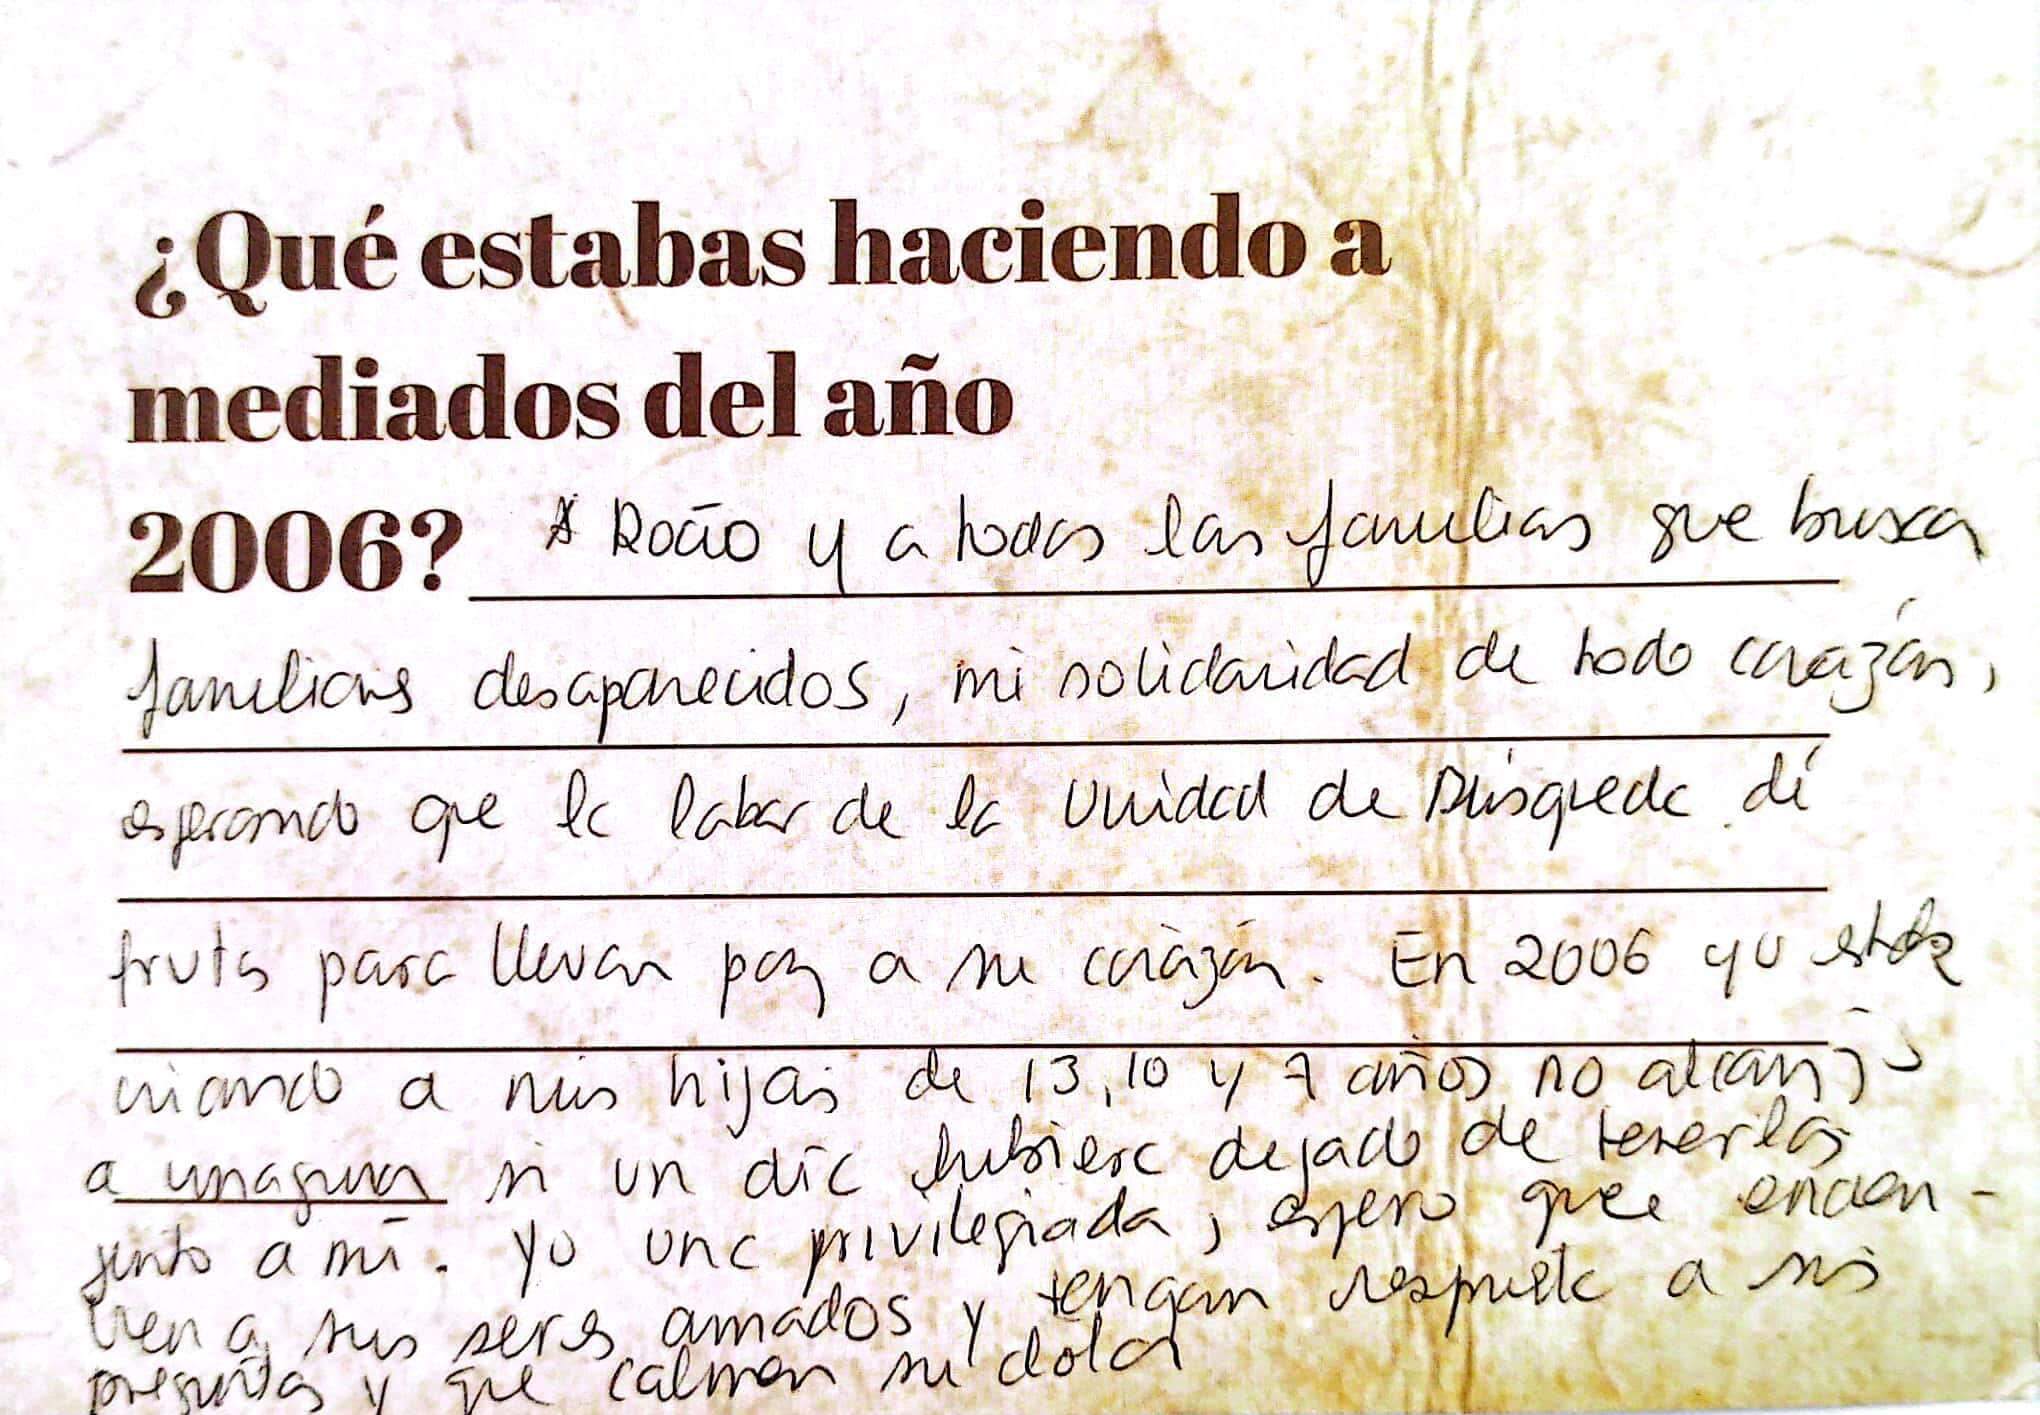 ¿Qué estabas haciendo a
mediados del año
2006? A Rocío y a todas las familias que busca
familias desaparecidos, mi solidaridad de todo corazón,
esperando que la labor de la Unidad de Búsqueda dé
frutos para llevar paz a su corazón. En 2006 yo estaba
criando a mis hijas de 13, 10 y 7 años no alcanzó
a imaginar si un día hubiera dejado de tenerlas
junto a mí. Yo una privilegiada, espero que encuen-
tren a sus seres amados y tengan respuesta a sus
preguntas y que calmen su dolor